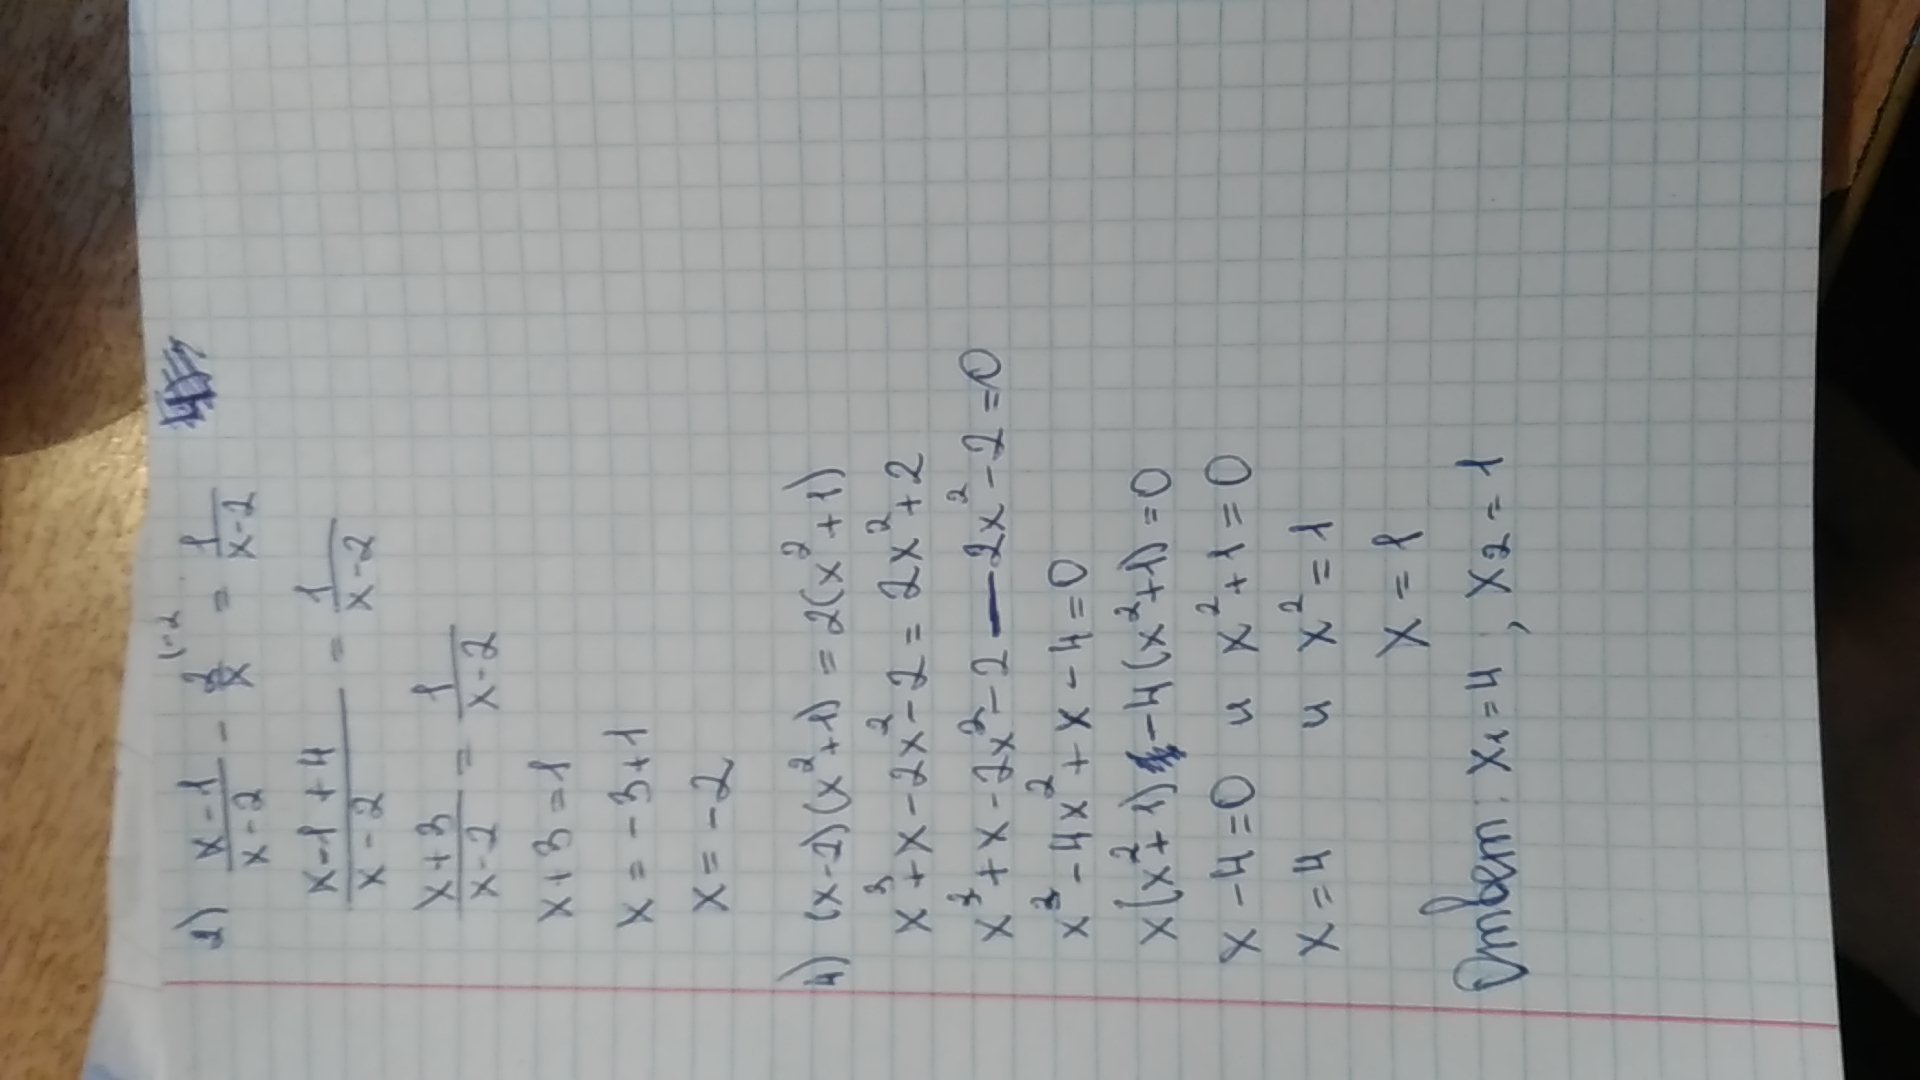 2) x-1/x-2 - 2/x = 1/x-2
x-1+4/x-2 = 1/x-2
x+3/x-2 = 1/x-2
x+3=1
x=-3+1
x=-2
4) (x-2)(x²+1)=2(x²+1)
x³+x-2x²-2=2x²+2
x³+x-2x²-2-2x²-2=0
x³-4x²+x-4=0
x(x²+1)-4(x²+1)=0
x-4=0 и x²+1=0
x=4 и x²=1
x=1
Ответ: x₁=4, x₂=1